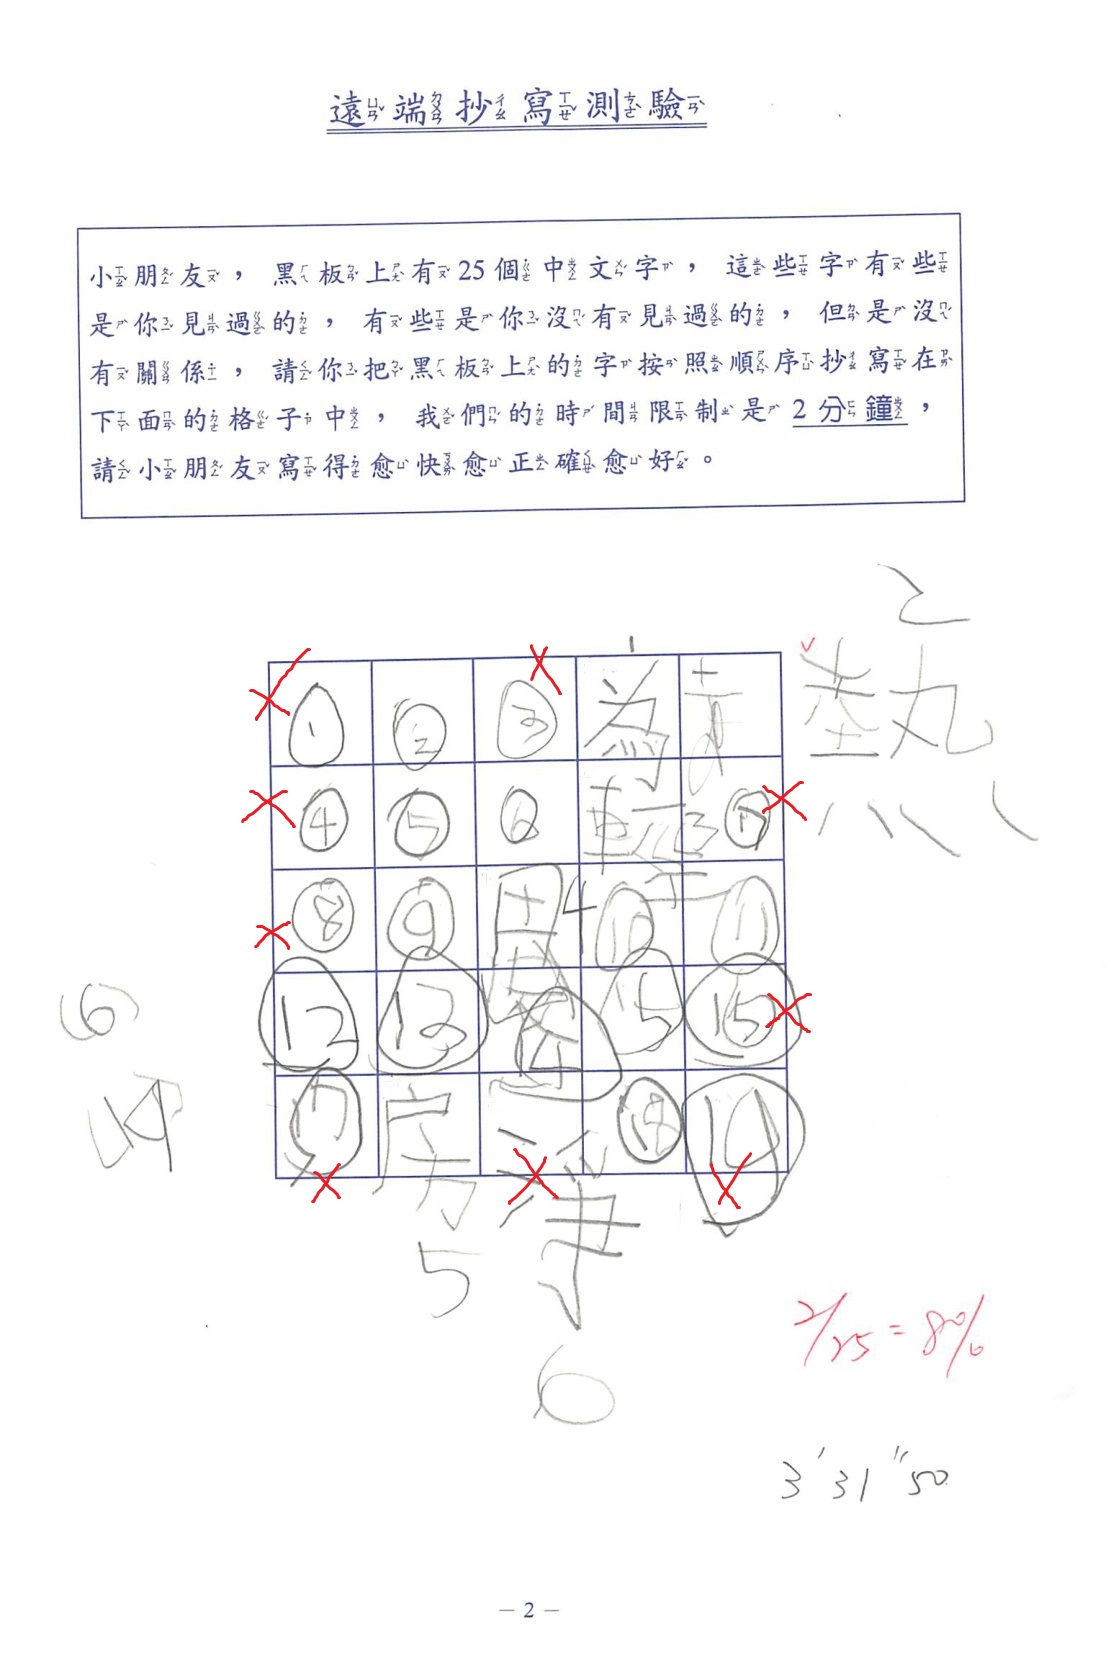 遠端抄寫測驗
小朋友，黑板上有25個中文字，這些字有些
是你見過的，有些是你沒有見過的，但是沒
有關係，請你把黑板上的字按照順序抄寫在
下面的格子中，我們的時間限制是2分鐘，
請小朋友寫得愈快愈正確愈好。
2
1 2 3 為 青 熱
4 5 6 輕 3
8 9 4 10 11
12 13 14 15 15
(6)
房 18 19
5
6
2/25=80%
3'31"50
－2－